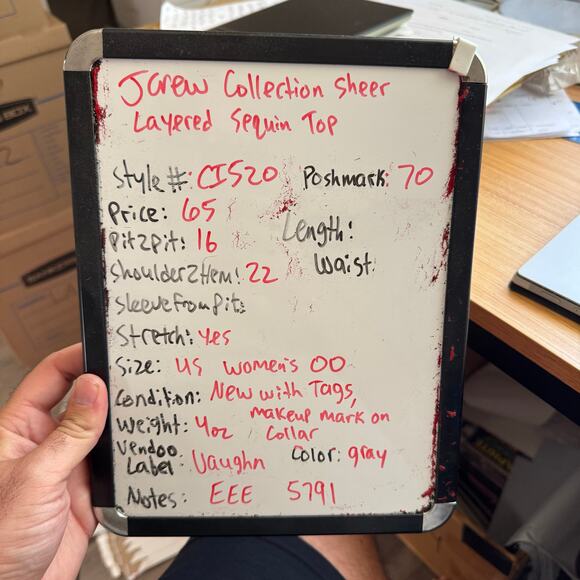 JCrew Collection Sheer
Layered Sequin Top
Style#: CI520 Poshmark: 70
Price: 65
Pit2Pit: 16 Length:
Shoulder2Hem: 22 Waist:
SleeveFromPit:
Stretch: Yes
Size: US women's 00
Condition: New with Tags,
makeup mark on
Weight: 4oz Collar
Vendoo
Label: Vaughn Color: gray
Notes: EEE 5791